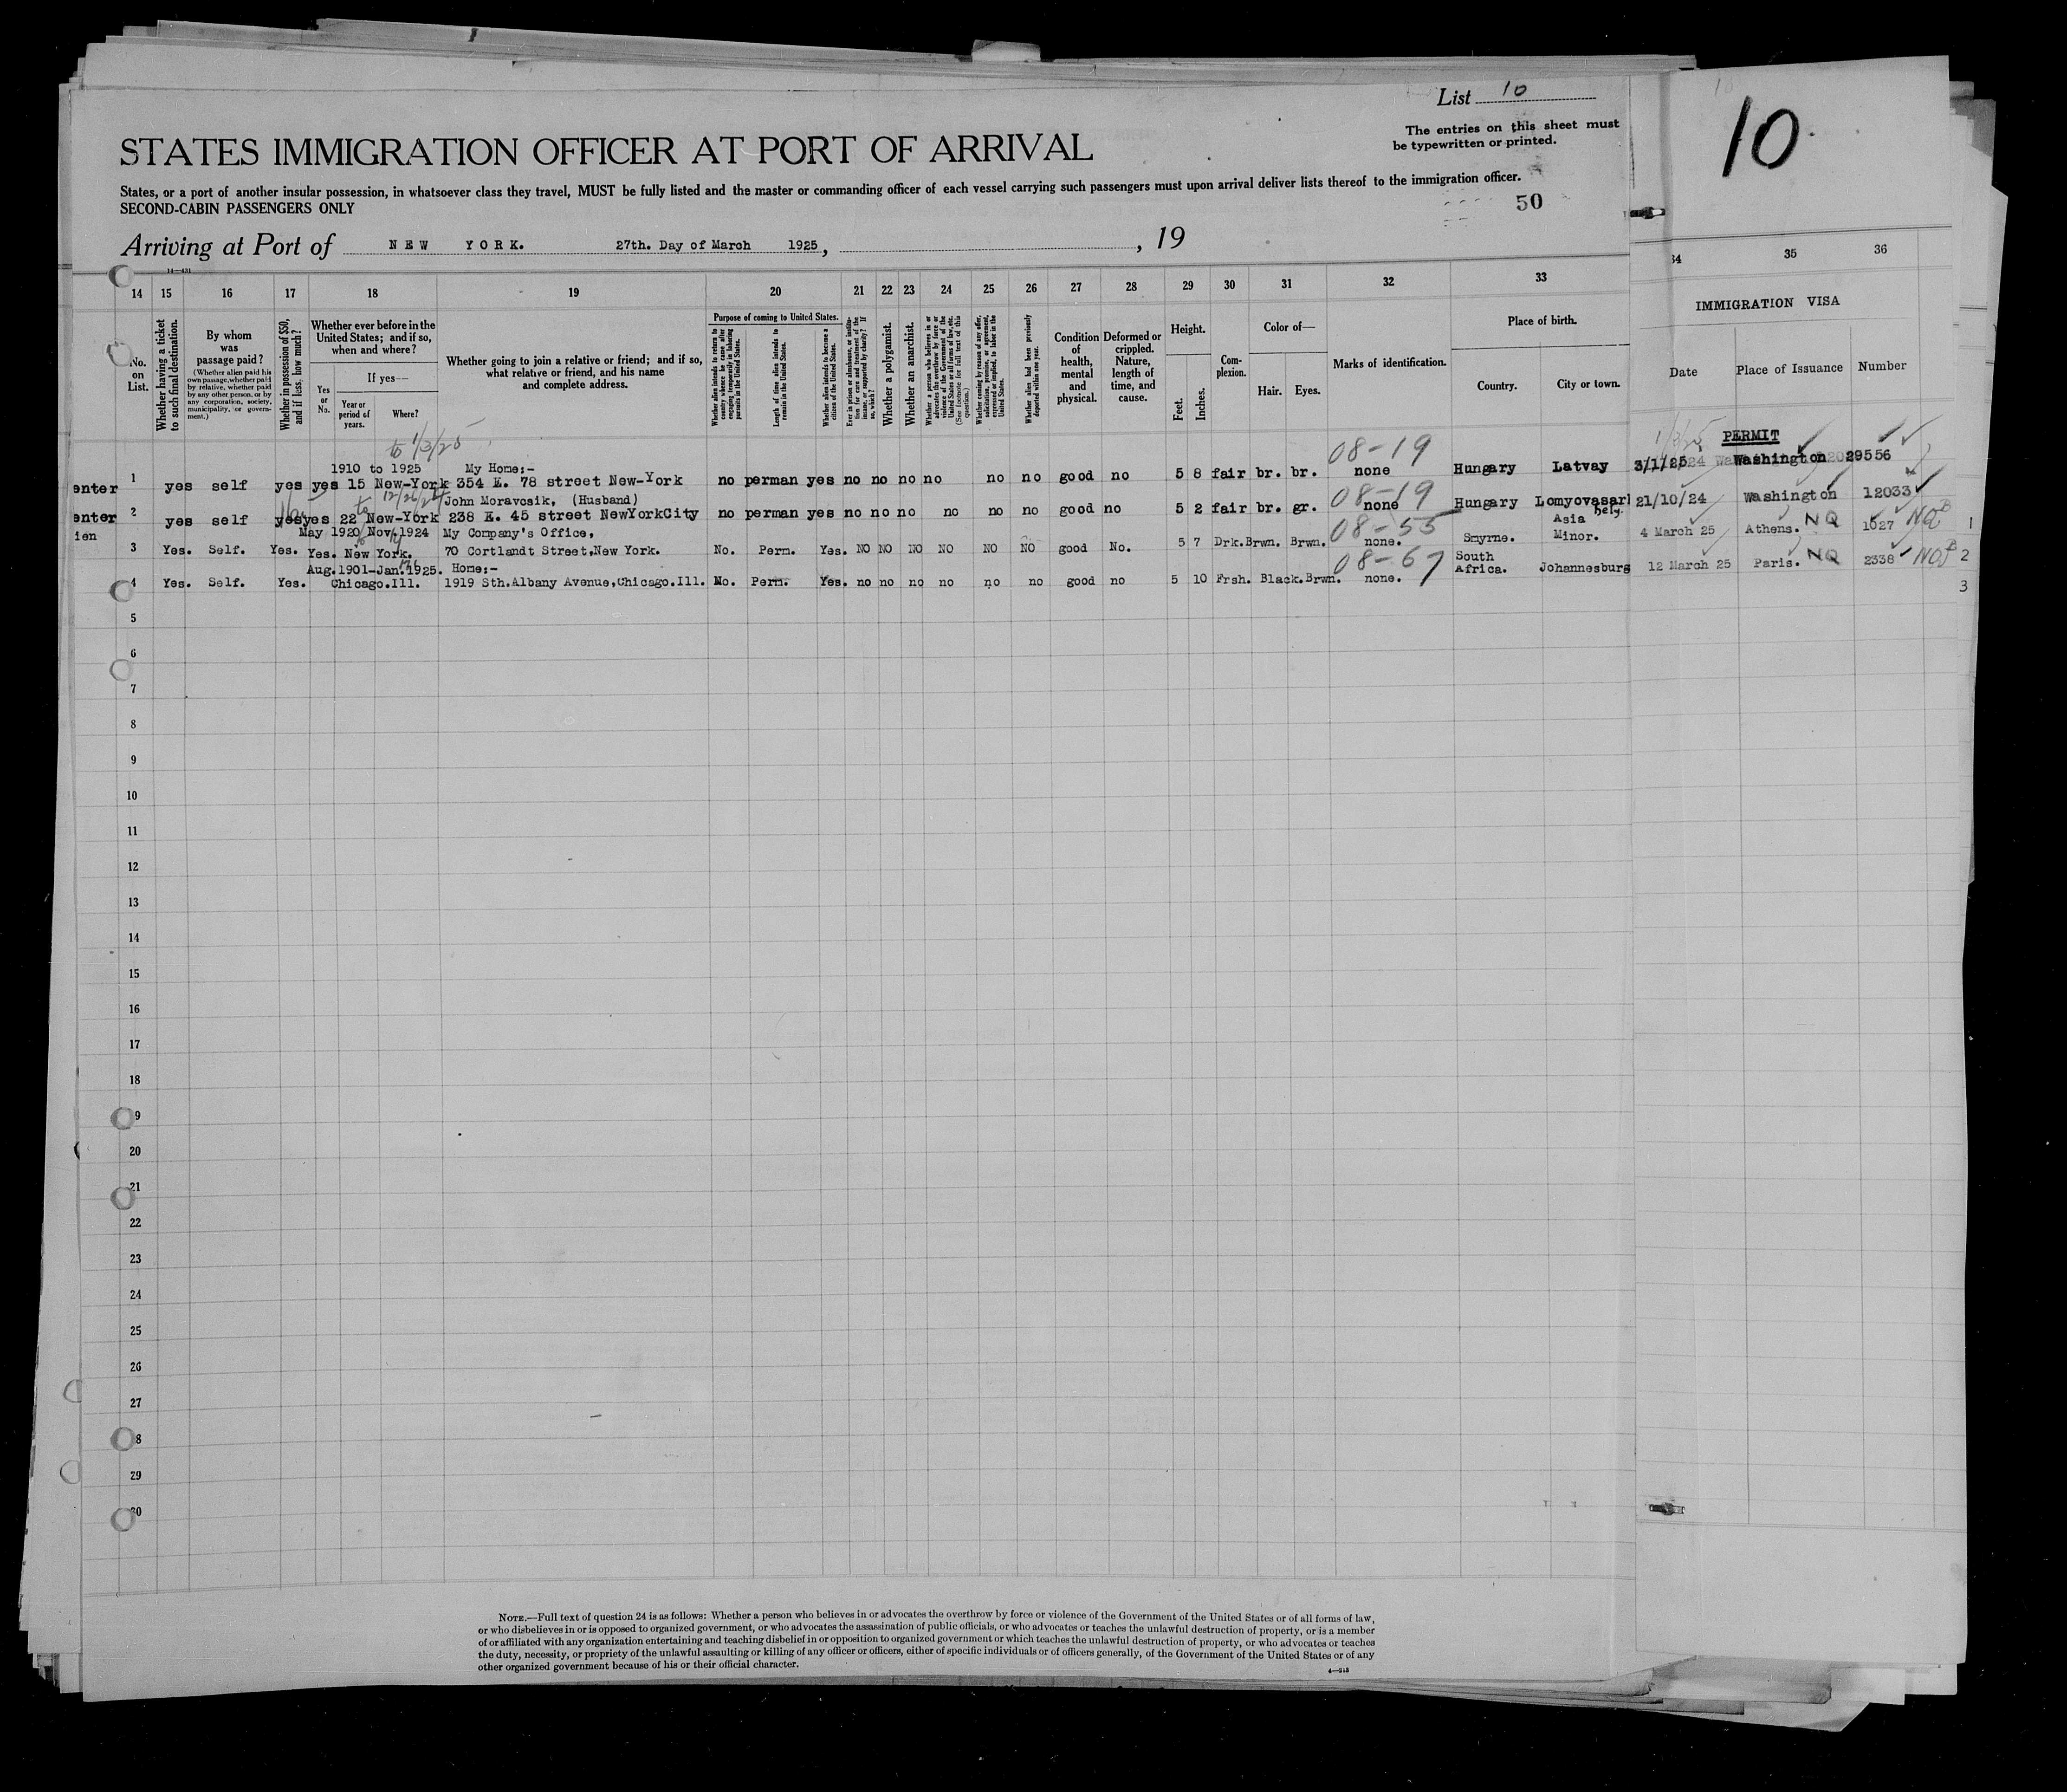 List 10
The entries on this sheet must
be typewritten or printed.
10
STATES IMMIGRATION OFFICER AT PORT OF ARRIVAL
States, or a port of another insular possession, in whatsoever class they travel, MUST be fully listed and the master or commanding officer of each vessel carrying such passengers must upon arrival deliver lists thereof to the immigration officer.
SECOND-CABIN PASSENGERS ONLY
50
Arriving at Port of NEW YORK. 27th. Day of March 1925, , 19
14 15 16 17 18 19 20 21 22 23 24 25 26 27 28 29 30 31 32 33 34 35 36
No. on List.
Whether having a ticket to such final destination.
By whom was passage paid?
(Whether alien paid his own passage, whether paid by relative, whether paid by any other person, or by any corporation, society, municipality, or government.)
Whether in possession of $50, and if less, how much?
Whether ever before in the United States; and if so, when and where?
Yes or No.
If yes—
Year or period of years.
Where?
Whether going to join a relative or friend; and if so, what relative or friend, and his name and complete address.
Purpose of coming to United States.
Whether alien intends to return to country whence he came after engaging temporarily in laboring pursuits in the United States.
Length of time alien intends to remain in the United States.
Whether alien intends to become a citizen of the United States.
Ever in prison or almshouse, or institution for care and treatment of the insane, or supported by charity? If so, which?
Whether a polygamist.
Whether an anarchist.
Whether a person who believes in or advocates the overthrow by force or violence of the Government of the United States or all forms of law, etc. (See footnote for full text of this question.)
Whether coming by reason of any offer, solicitation, promise, or agreement, expressed or implied, to labor in the United States.
Whether alien had been previously deported within one year.
Condition of health, mental and physical.
Deformed or crippled. Nature, length of time, and cause.
Height.
Feet.
Inches.
Complexion.
Color of—
Hair.
Eyes.
Marks of identification.
Place of birth.
Country.
City or town.
IMMIGRATION VISA
Date
Place of Issuance
Number
to 1/3/25
08-19
PERMIT
1910 to 1925 My Home:-
enter 1 yes self yes yes 15 New-York 354 E. 78 street New-York no perman yes no no no no no no good no 5 8 fair br. br. none Hungary Latvay 3/1/25 Washington 29556
to 12/26/24 John Moravcsik, (Husband) 08-19
enter 2 yes self yes yes 22 New-York 238 E. 45 street NewYorkCity no perman yes no no no no no no good no 5 2 fair br. gr. none Hungary Lomyovasar hely. 21/10/24 Washington 12033
ien
May 1920 Nov. 1924 My Company's Office, 08-55 Asia
3 Yes. Self. Yes. Yes. New York. 70 Cortlandt Street,New York. No. Perm. Yes. NO NO NO NO NO NO good No. 5 7 Drk.Brwn. Brwn. none. Smyrne. Minor. 4 March 25 Athens. NQ 1027 NQ 1
Aug.1901-Jan.1925. Home:- 08-67 South
4 Yes. Self. Yes. Chicago.Ill. 1919 Sth.Albany Avenue,Chicago.Ill. No. Perm. Yes. no no no no no no good no 5 10 Frsh. Black.Brwn. none. Africa. Johannesburg 12 March 25 Paris. NQ 2338 NQ 2
3
5
6
7
8
9
10
11
12
13
14
15
16
17
18
9
20
21
22
23
24
25
26
27
8
29
30
NOTE.—Full text of question 24 is as follows: Whether a person who believes in or advocates the overthrow by force or violence of the Government of the United States or of all forms of law,
or who disbelieves in or is opposed to organized government, or who advocates the assassination of public officials, or who advocates or teaches the unlawful destruction of property, or is a member
of or affiliated with any organization entertaining and teaching disbelief in or opposition to organized government or which teaches the unlawful destruction of property, or who advocates or teaches
the duty, necessity, or propriety of the unlawful assaulting or killing of any officer or officers, either of specific individuals or of officers generally, of the Government of the United States or of any
other organized government because of his or their official character.